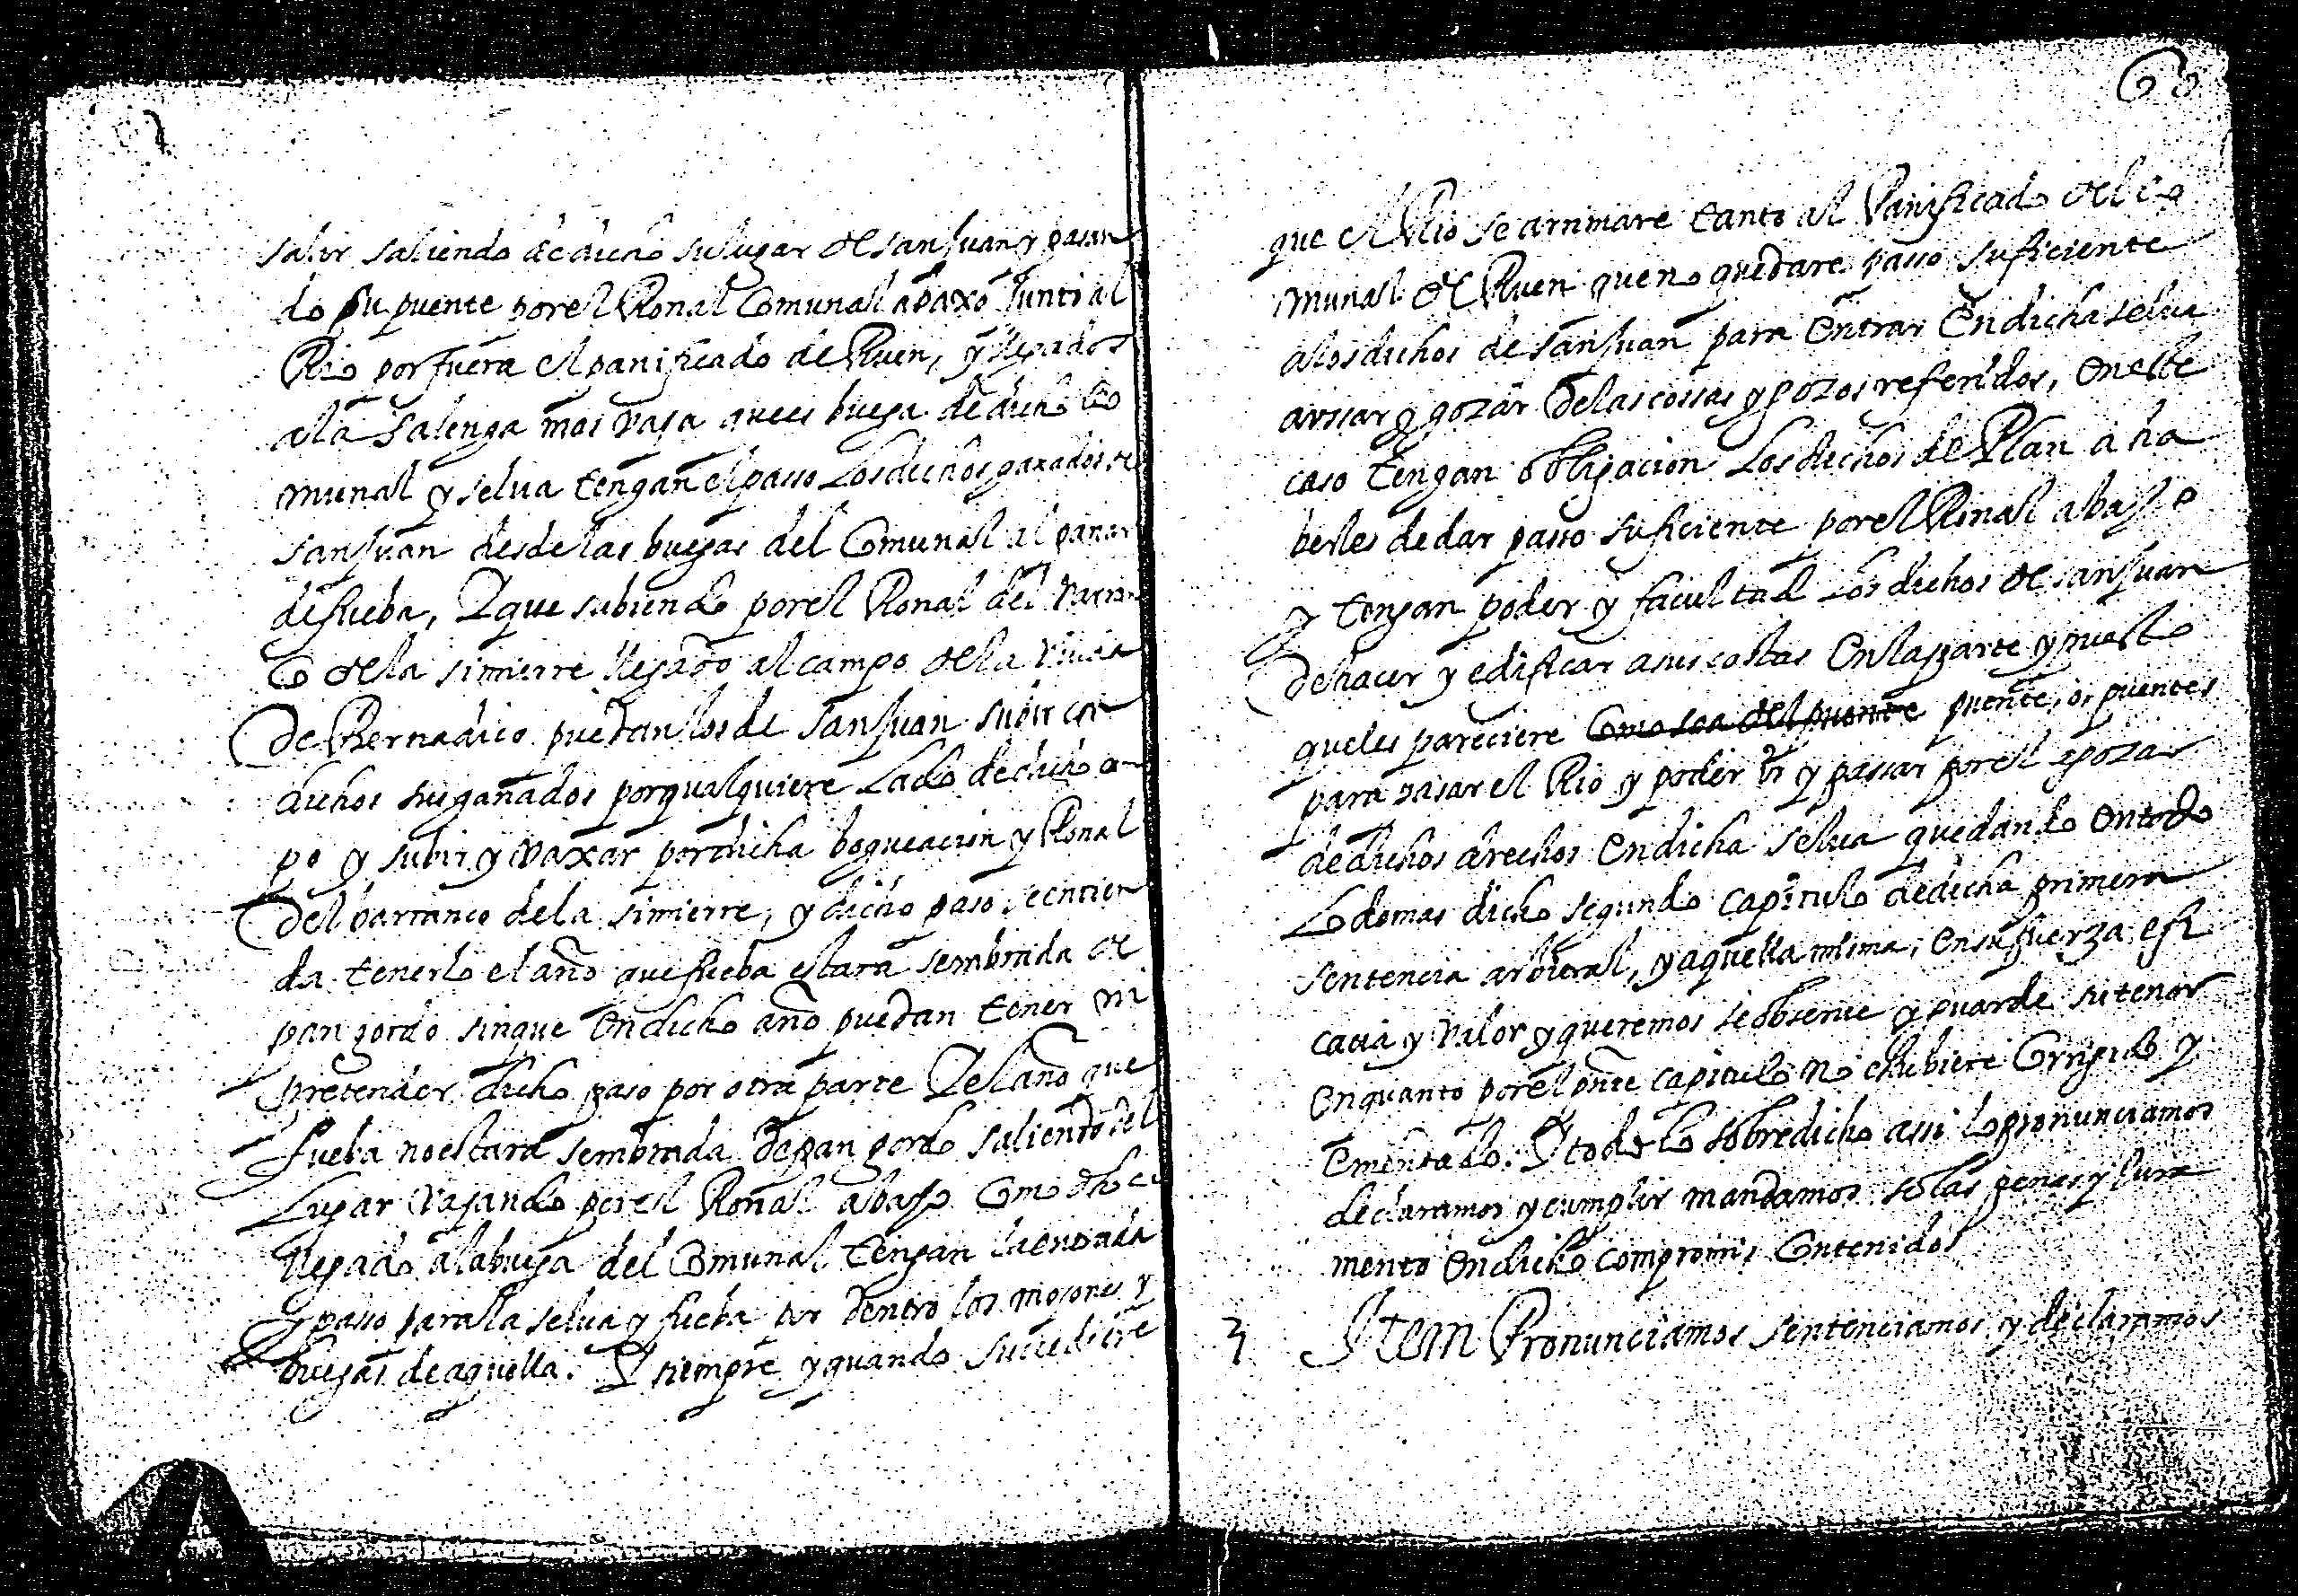 salir saliendo de dicho su lugar de san Juan y pasan
do su puente por el Ronal Comunal abaxo Junto al
Rio por fuera el panificado de Ruen, y llegados
a la Salenga mas vaja que es buega de dicho Co
munal y selua tengan el passo Los dichos ganados de
san Juan desde las buegas del Comunal al panar
de fueba, Y que subiendo por el Ronal del Varran
co de la simierre llegado al campo de la Viuda
de Bernadico puedan los de san Juan subir con
dichos sus ganados por qualquiere Lado de dicho cam
po y subir y vaxar por dicha bogueacion y Ronal
del barranco de la simierre, y dicho paso se entien
da tenerlo el año que fueba estara sembrada de
pan gordo sin que en dicho año puedan tener ni
pretender dicho paso por otra parte Y el año que
fueba no estara sembrada de pan gordo saliendo del
Lugar vajando por el Ronal abajo Como dho es
llegado a la buega del Comunal tengan la entrada
y passo para la selua y fueba por dentro los mojones y
buegas de aquella. Y siempre y quando succediere
60
que el Rio se arrimare tanto al Panificado del Co
munal de Ruen que no quedare passo suficiente
a los dichos de san Juan para entrar en dicha selua
a vssar y gozar de las cossas y gozos referidos, en este
caso tengan obligacion Los dichos de Plan a ha
berles de dar passo suficiente por el Ronal abajo
y tengan poder y facultad Los dichos de san Juan
de hacer y edificar a sus costas en la parte y puesto
que les pareciere Como sea del puente puente, o, puentes
para pasar el Rio y poder ir y passar por el y gozar
de dichos drechos en dicha selua quedando en todo
Lo demas dicho segundo capitulo de dicha primera
sentencia arbitral, y aquella misma, en su fuerza efi
cacia y valor y queremos se obserue y guarde su tenor
en quanto por el pnte capitulo no estubiere Corrigido y
ementado. Y todo lo sobredicho assi lo pronunciamos
declaramos y cumplir mandamos solas penas y Jura
mento en dicho compromis Contenidos
3 Item Pronunciamos sentenciamos y declaramos